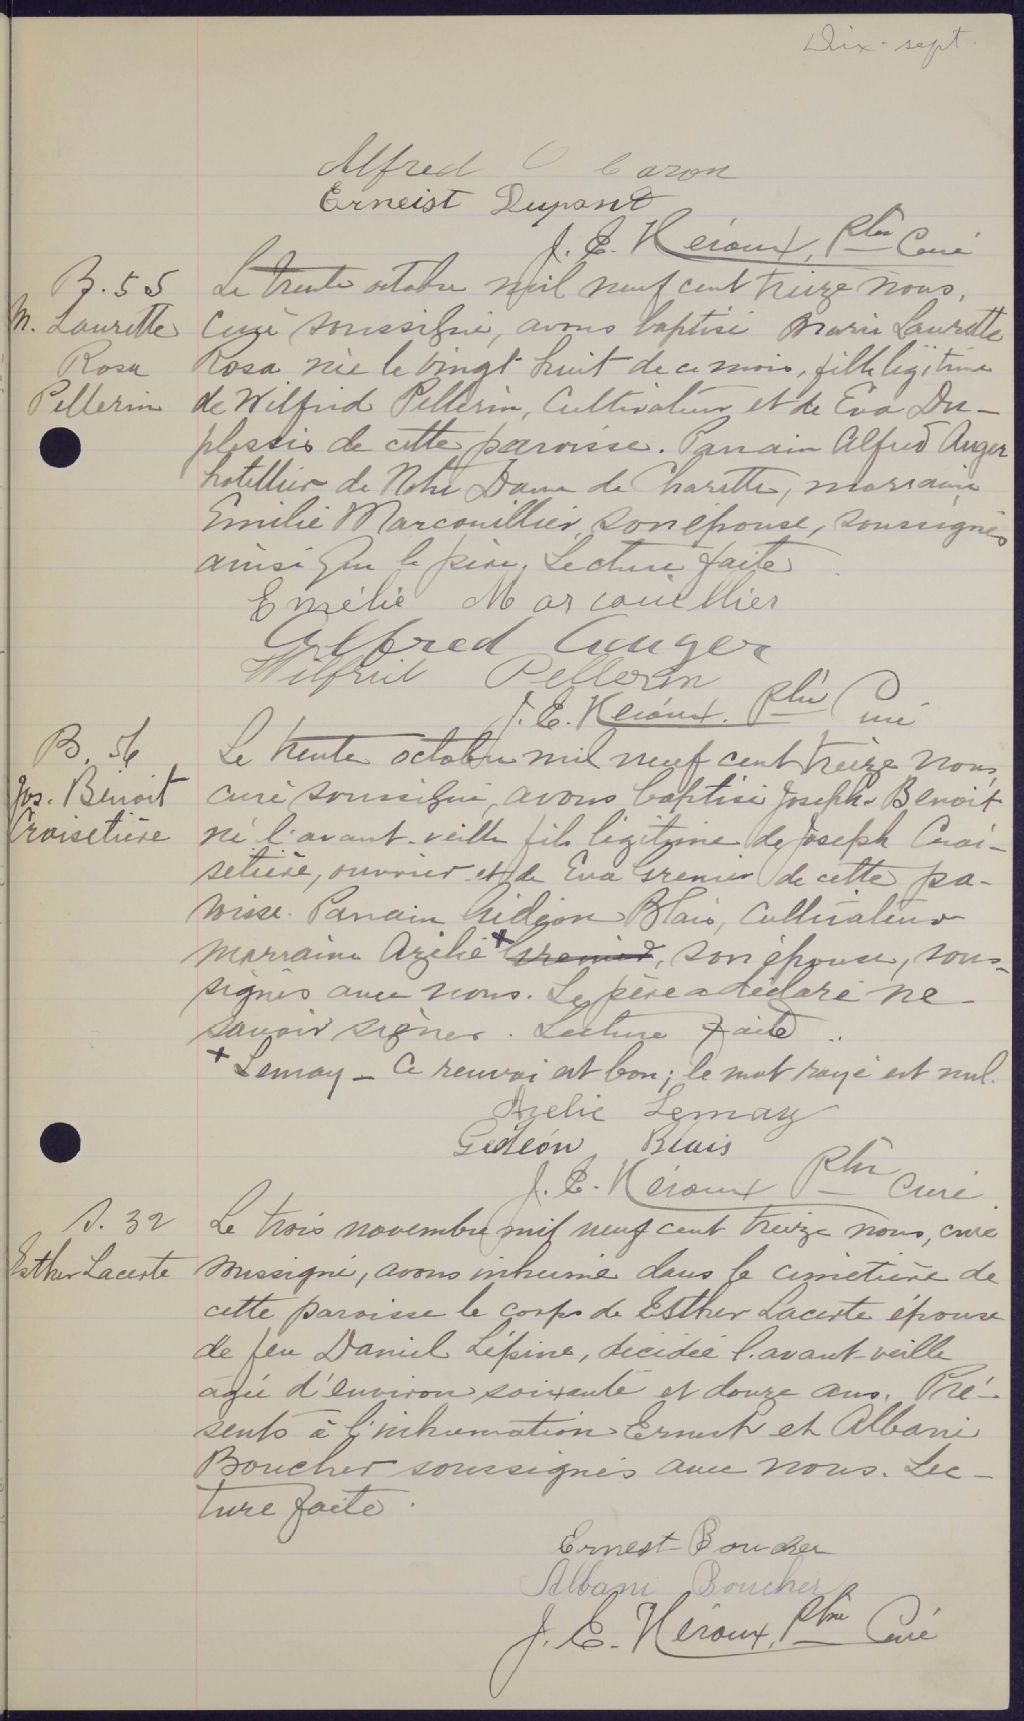 Dix-sept.
Alfred Caron
Erneist Dupont
J. E. Héroux, Ptre Curé
B. 55
M. Laurette
Rosa
Pellerin
Le trente octobre mil neuf cent treize nous,
curé soussigné, avons baptisé Marie Laurette
Rosa née le vingt huit de ce mois, fille légitime
de Wilfrid Pellerin, Cultivateur et de Eva Du-
plessis de cette paroisse. Parrain Alfred Auger
hotellier de Notre Dame de Charette, marraine
Emilie Marcouillier, son épouse, soussignés
ainsi que le père. Lecture faite
Emélie Marcouillier
Alfred Auger
Wilfrid Pellerin
J. E. Héroux. Ptre Curé
B. 56
Jos. Benoit
Croisetière
Le trente octobre mil neuf cent treize nous,
curé soussigné, avons baptisé Joseph-Benoit
né l'avant-veille fils légitime de Joseph Croi-
setière, ouvrier et de Eva Grenier de cette pa-
roisse. Parrain Gédéon Blais, Cultivateur
marraine Azélie + Grenier, son épouse, sous-
signés avec nous. Le père a déclaré ne
savoir signer. Lecture faite.
+ Lemay - Ce renvoi est bon; le mot rayé est nul.
Azelie Lemay
Gédéon Blais
J. E. Héroux Ptre Curé
S. 32
Esther Lacerte
Le trois novembre mil neuf cent treize nous, curé
soussigné, avons inhumé dans le cimetière de
cette paroisse le corps de Esther Lacerte épouse
de feu Daniel Lépine, décédée l'avant-veille
agée d'environ soixante et douze ans. Pré-
sents à l'inhumation Ernest et Albani
Boucher soussignés avec nous. Lec-
ture faite.
Ernest Boucher
Albani Boucher
J. E. Héroux, Ptre Curé